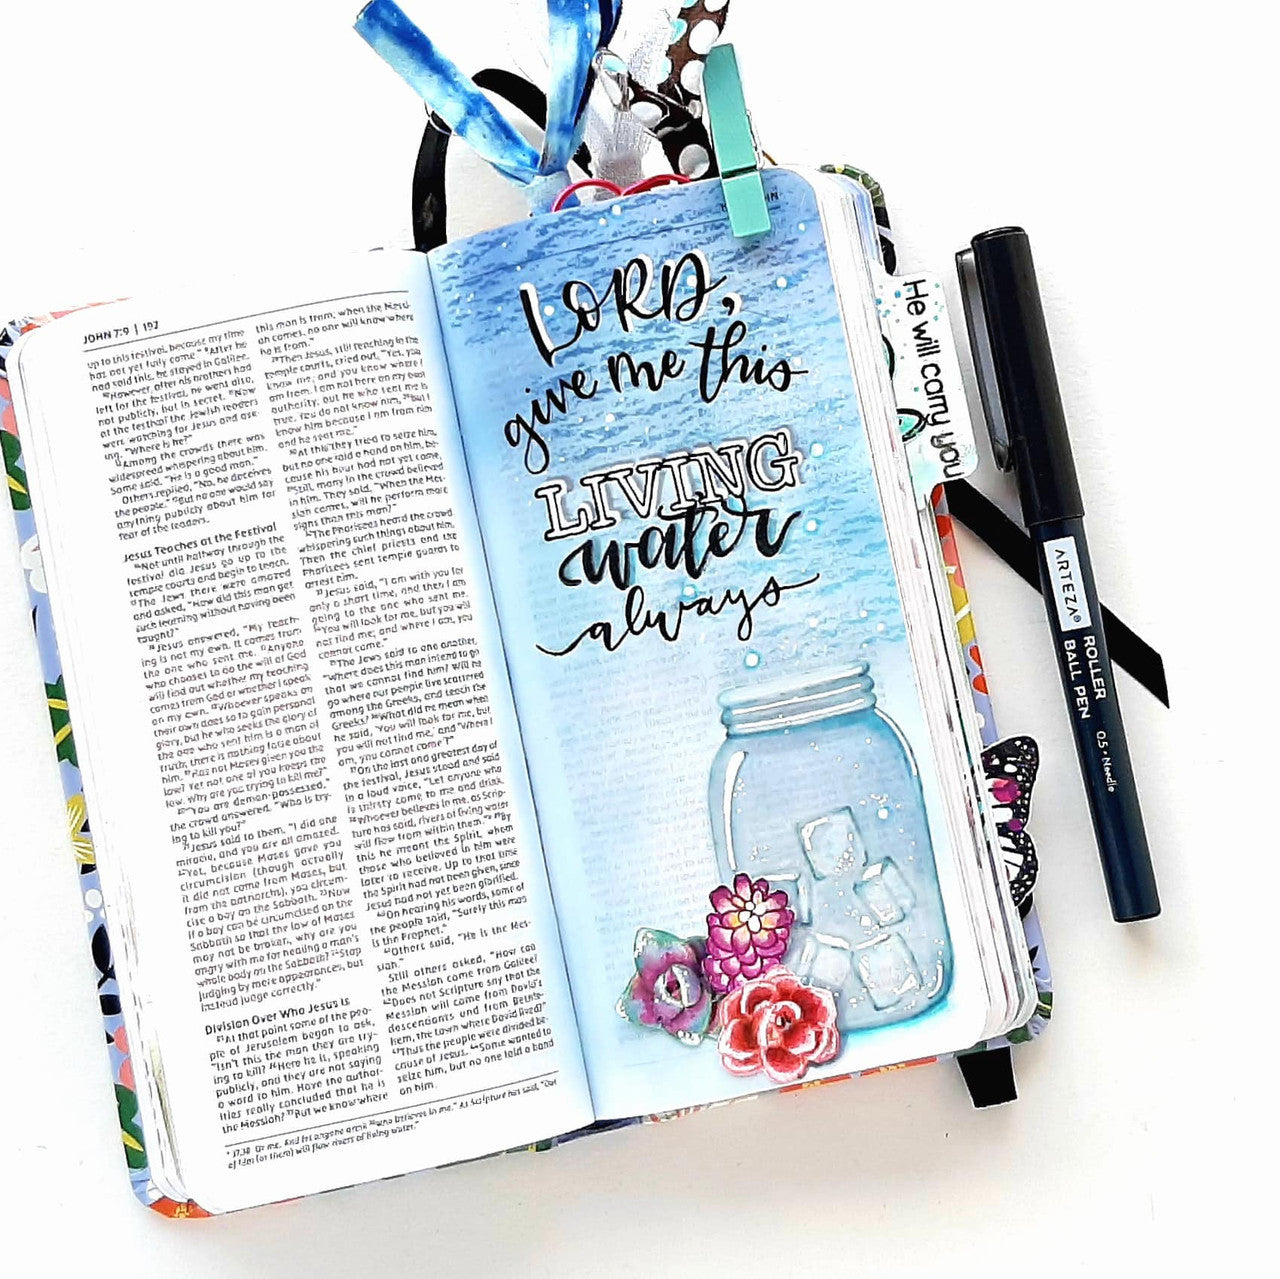 JOHN 7:9 | 192
up to this festival, because my time
has not yet fully come." ⁹After he
had said this, he stayed in Galilee.
¹⁰However, after his brothers had
left for the festival, he went also,
not publicly, but in secret. ¹¹Now
at the festival the Jewish leaders
were watching for Jesus and ask-
ing, "Where is he?"
¹²Among the crowds there was
widespread whispering about him.
Some said, "He is a good man."
Others replied, "No, he deceives
the people." ¹³But no one would say
anything publicly about him for
fear of the leaders.
Jesus Teaches at the Festival
¹⁴Not until halfway through the
festival did Jesus go up to the
temple courts and begin to teach.
¹⁵The Jews there were amazed
and asked, "How did this man get
such learning without having been
taught?"
¹⁶Jesus answered, "My teach-
ing is not my own. It comes from
the one who sent me. ¹⁷Anyone
who chooses to do the will of God
will find out whether my teaching
comes from God or whether I speak
on my own. ¹⁸Whoever speaks on
their own does so to gain personal
glory, but he who seeks the glory of
the one who sent him is a man of
truth; there is nothing false about
him. ¹⁹Has not Moses given you the
law? Yet not one of you keeps the
law. Why are you trying to kill me?"
²⁰"You are demon-possessed,"
the crowd answered. "Who is try-
ing to kill you?"
²¹Jesus said to them, "I did one
miracle, and you are all amazed.
²²Yet, because Moses gave you
circumcision (though actually
it did not come from Moses, but
from the patriarchs), you circum-
cise a boy on the Sabbath. ²³Now
if a boy can be circumcised on the
Sabbath so that the law of Moses
may not be broken, why are you
angry with me for healing a man's
whole body on the Sabbath? ²⁴Stop
judging by mere appearances, but
instead judge correctly."
Division Over Who Jesus Is
²⁵At that point some of the peo-
ple of Jerusalem began to ask,
"Isn't this the man they are try-
ing to kill? ²⁶Here he is, speaking
publicly, and they are not saying
a word to him. Have the author-
ities really concluded that he is
the Messiah? ²⁷But we know where
this man is from; when the Messi-
ah comes, no one will know where
he is from."
²⁸Then Jesus, still teaching in the
temple courts, cried out, "Yes, you
know me, and you know where I
am from. I am not here on my own
authority, but he who sent me is
true. You do not know him, ²⁹but I
know him because I am from him
and he sent me."
³⁰At this they tried to seize him,
but no one laid a hand on him, be-
cause his hour had not yet come.
³¹Still, many in the crowd believed
in him. They said, "When the Mes-
siah comes, will he perform more
signs than this man?"
³²The Pharisees heard the crowd
whispering such things about him.
Then the chief priests and the
Pharisees sent temple guards to
arrest him.
³³Jesus said, "I am with you for
only a short time, and then I am
going to the one who sent me.
³⁴You will look for me, but you will
not find me; and where I am, you
cannot come."
³⁵The Jews said to one another,
"Where does this man intend to go
that we cannot find him? Will he
go where our people live scattered
among the Greeks, and teach the
Greeks? ³⁶What did he mean when
he said, 'You will look for me, but
you will not find me,' and 'Where I
am, you cannot come'?"
³⁷On the last and greatest day of
the festival, Jesus stood and said
in a loud voice, "Let anyone who
is thirsty come to me and drink.
³⁸Whoever believes in me, as Scrip-
ture has said, rivers of living water
will flow from within them." ³⁹By
this he meant the Spirit, whom
those who believed in him were
later to receive. Up to that time
the Spirit had not been given, since
Jesus had not yet been glorified.
⁴⁰On hearing his words, some of
the people said, "Surely this man
is the Prophet."
⁴¹Others said, "He is the Mes-
siah."
Still others asked, "How can
the Messiah come from Galilee?
⁴²Does not Scripture say that the
Messiah will come from David's
descendants and from Bethle-
hem, the town where David lived?"
⁴³Thus the people were divided be-
cause of Jesus. ⁴⁴Some wanted to
seize him, but no one laid a hand
on him.
LORD,
give me this
LIVING
water
always
He will carry you
ARTEZA®
ROLLER
BALL PEN
0.5 • Needle